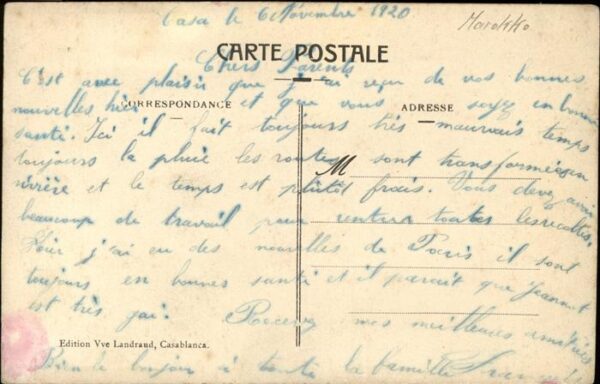 Casa le 6 Novembre 1920
Marokko
CARTE POSTALE
Chers Parents
C'est avec plaisir que j'ai reçu de vos bonnes
nouvelles hier et que vous soyez en bonne
CORRESPONDANCE
ADRESSE
santé. Ici il fait toujours très mauvais temps
toujours la pluie les routes sont transformées en
M
rivière et le temps est plutôt frais. Vous devez avoir
beaucoup de travail pour rentrer toutes les récoltes.
Hier j'ai eu des nouvelles de Paris il sont
toujours en bonnes santé et il parait que Jeannot
est très gai. Recevez mes meilleures amitiés
Edition Vve Landraud, Casablanca.
Bien le bonjour à toute la famille